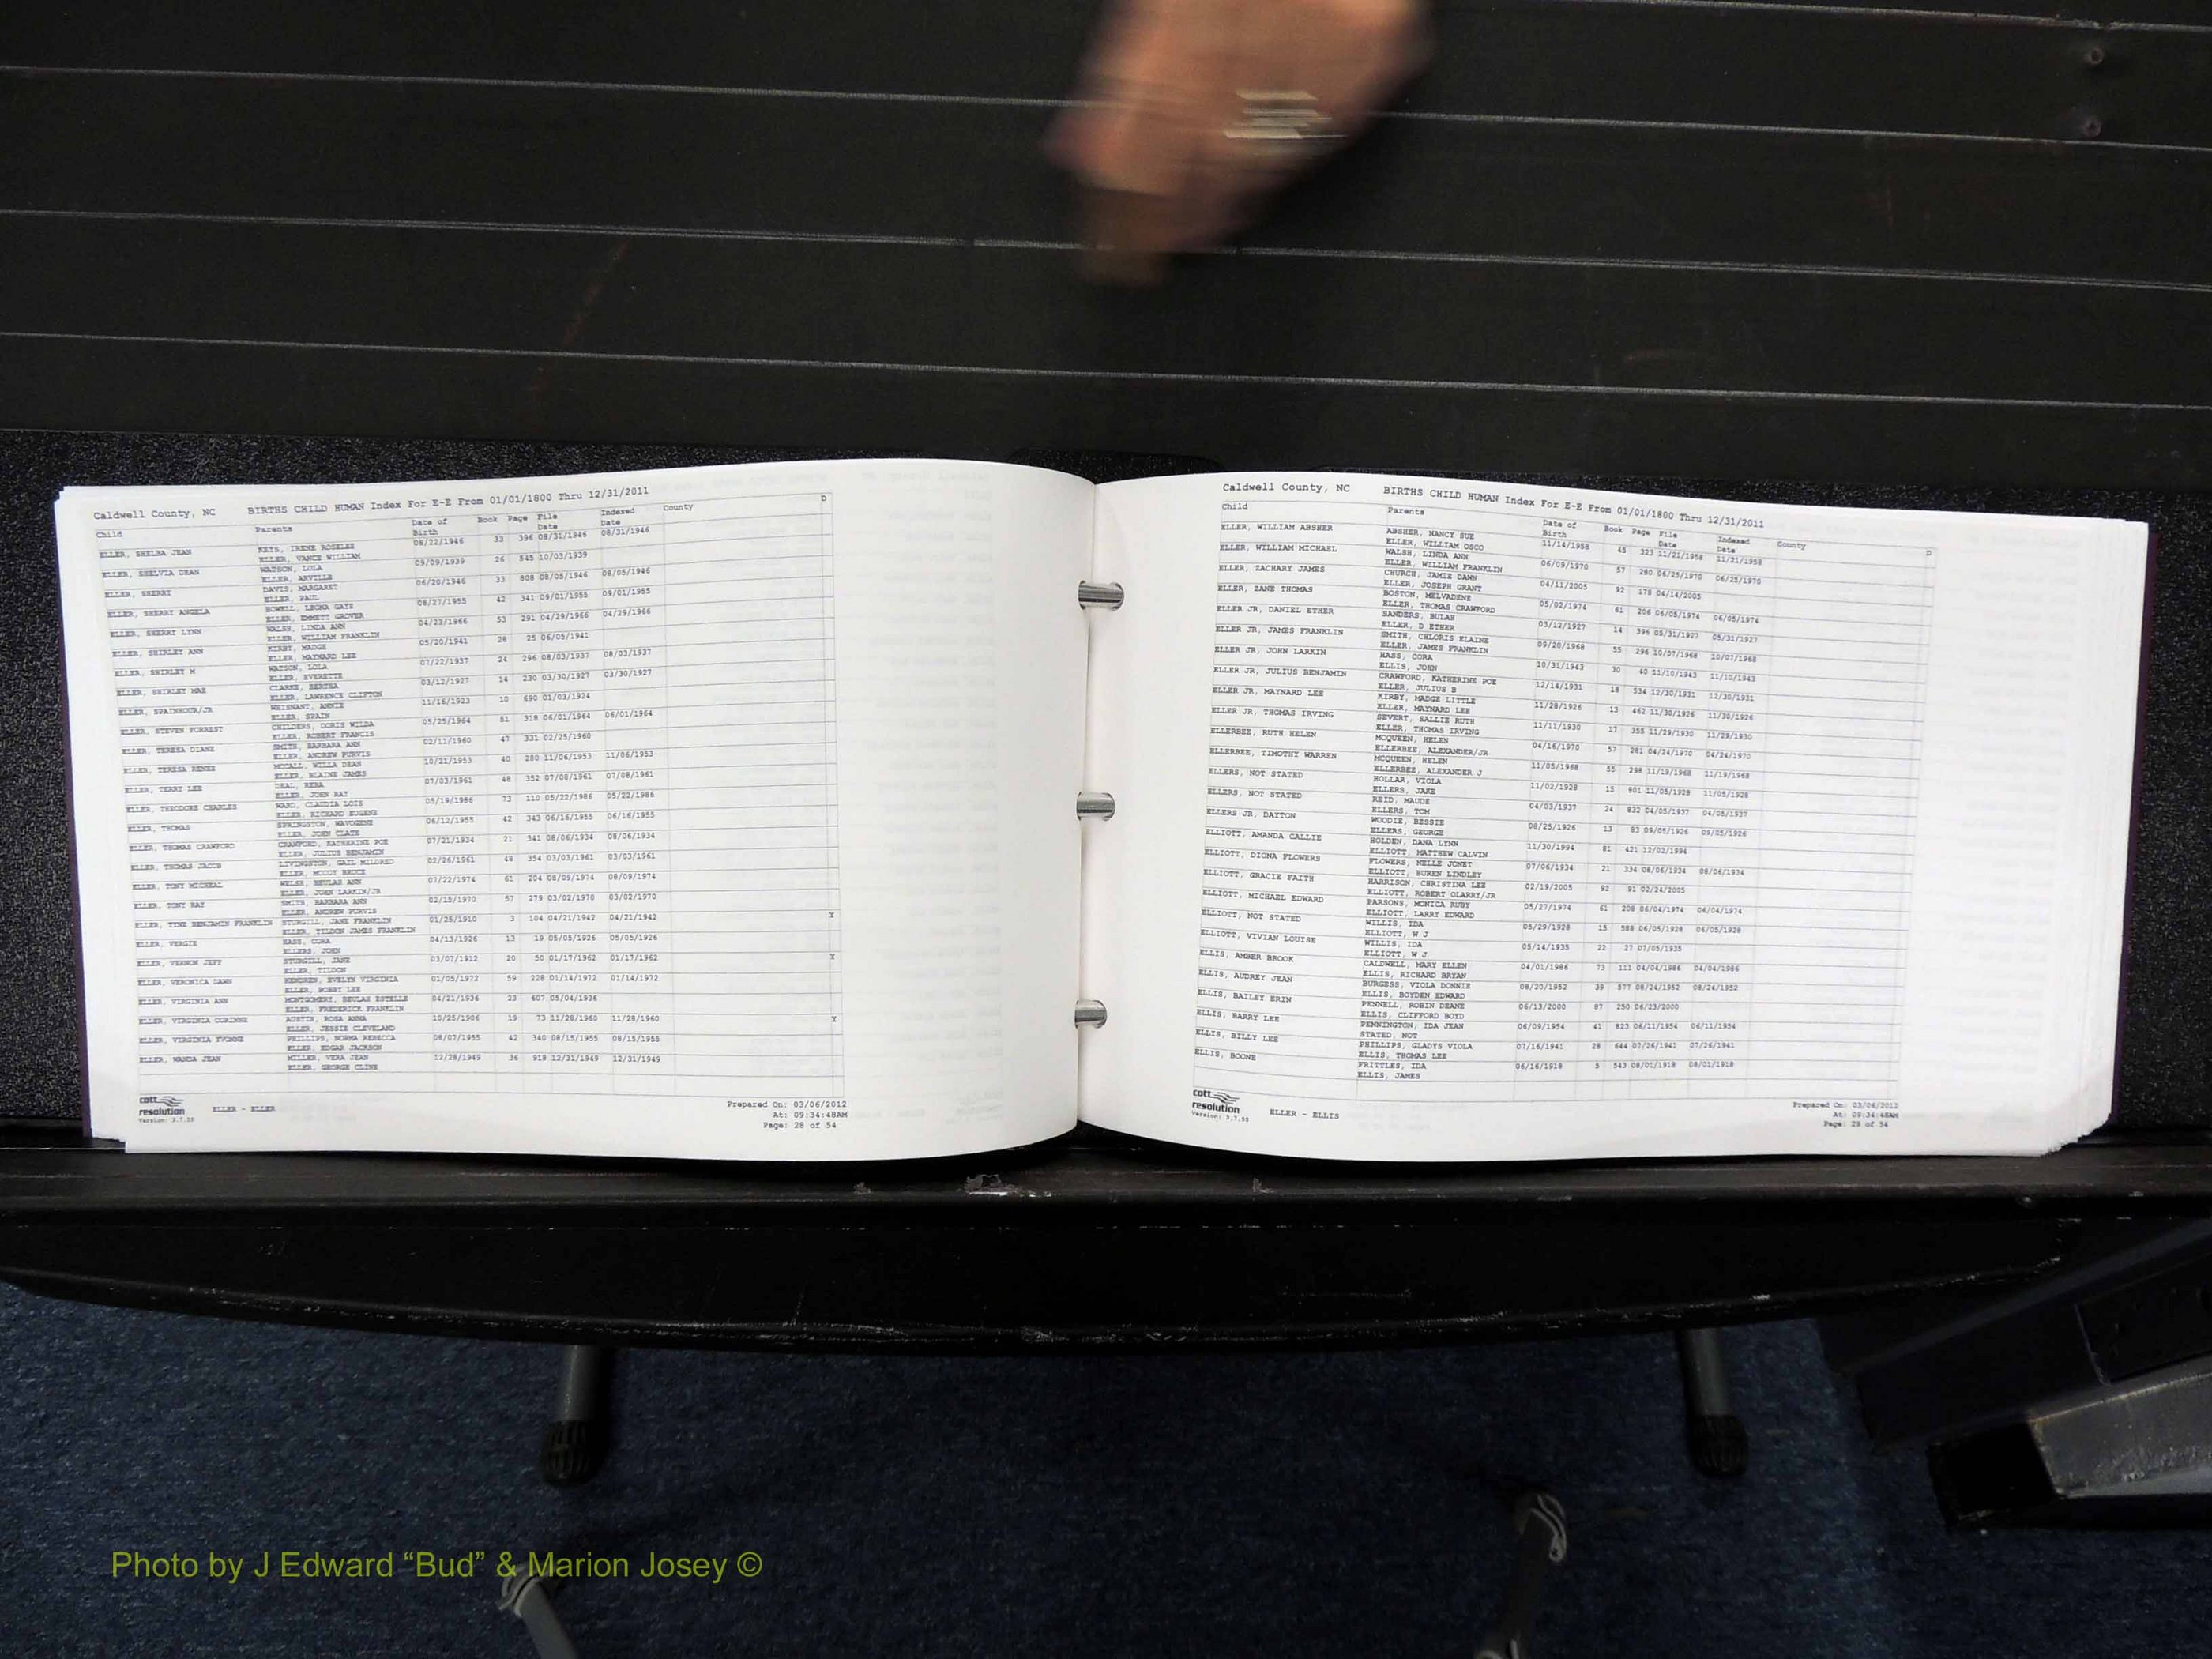 Caldwell County, NC BIRTHS CHILD HUMAN Index For E-E From 01/01/1800 Thru 12/31/2011
Child Parents Date of Birth Book Page File Date Indexed Date County D
ELLER, SHELBA JEAN KEYS, IRENE ROSELEE 08/22/1946 33 396 08/31/1946 08/31/1946
ELLER, VANCE WILLIAM
ELLER, SHELVIA DEAN WATSON, LOLA 09/09/1939 26 545 10/03/1939
ELLER, ARVILLE
ELLER, SHERRY DAVIS, MARGARET 06/20/1946 33 808 08/05/1946 08/05/1946
ELLER, PAUL
ELLER, SHERRY ANGELA HOWELL, LEONA GAYE 08/27/1955 42 341 09/01/1955 09/01/1955
ELLER, EMMETT GROVER
ELLER, SHERRY LYNN WALSH, LINDA ANN 04/23/1966 53 291 04/29/1966 04/29/1966
ELLER, WILLIAM FRANKLIN
ELLER, SHIRLEY ANN KIRBY, MADGE 05/20/1941 28 25 06/05/1941
ELLER, MAYNARD LEE
ELLER, SHIRLEY M WATSON, LOLA 07/22/1937 24 296 08/03/1937 08/03/1937
ELLER, EVERETTE
ELLER, SHIRLEY MAE CLARKE, BERTHA 03/12/1927 14 230 03/30/1927 03/30/1927
ELLER, LAWRENCE CLIFTON
ELLER, SPAINHOUR/JR WHISNANT, ANNIE 11/16/1923 10 690 01/03/1924
ELLER, SPAIN
ELLER, STEVEN FORREST CHILDERS, DORIS WILDA 05/25/1964 51 318 06/01/1964 06/01/1964
ELLER, ROBERT FRANCIS
ELLER, TERESA DIANE SMITH, BARBARA ANN 02/11/1960 47 331 02/25/1960
ELLER, ANDREW PURVIS
ELLER, TERESA RENEE MCCALL, WILLA DEAN 10/21/1953 40 280 11/06/1953 11/06/1953
ELLER, BLAINE JAMES
ELLER, TERRY LEE DEAL, REBA 07/03/1961 48 352 07/08/1961 07/08/1961
ELLER, JOHN RAY
ELLER, THEODORE CHARLES WARD, CLAUDIA LOIS 05/19/1986 73 110 05/22/1986 05/22/1986
ELLER, RICHARD EUGENE
ELLER, THOMAS SPRINGSTON, WAVOGENE 06/12/1955 42 343 06/16/1955 06/16/1955
ELLER, JOHN CLATE
ELLER, THOMAS CRAWFORD CRAWFORD, KATHERINE POE 07/21/1934 21 341 08/06/1934 08/06/1934
ELLER, JULIUS BENJAMIN
ELLER, THOMAS JACOB LIVINGSTON, GAIL MILDRED 02/26/1961 48 354 03/03/1961 03/03/1961
ELLER, MCCOY BRUCE
ELLER, TONY MICHEAL WELSH, BEULAH ANN 07/22/1974 61 204 08/09/1974 08/09/1974
ELLER, JOHN LARKIN/JR
ELLER, TONY RAY SMITH, BARBARA ANN 02/15/1970 57 279 03/02/1970 03/02/1970
ELLER, ANDREW PURVIS
ELLER, TYNE BENJAMIN FRANKLIN STURGILL, JANE FRANKLIN 01/25/1910 3 104 04/21/1942 04/21/1942 Y
ELLER, TILDON JAMES FRANKLIN
ELLER, VERGIE HASS, CORA 04/13/1926 13 19 05/05/1926 05/05/1926
ELLERS, JOHN
ELLER, VERNON JEFF STURGILL, JANE 03/07/1912 20 50 01/17/1962 01/17/1962 Y
ELLER, TILDON
ELLER, VERONICA DAWN HENDREN, EVELYN VIRGINIA 01/05/1972 59 228 01/14/1972 01/14/1972
ELLER, BOBBY LEE
ELLER, VIRGINIA ANN MONTGOMERY, BEULAH ESTELLE 04/21/1936 23 607 05/04/1936
ELLER, FREDERICK FRANKLIN
ELLER, VIRGINIA CORINNE AUSTIN, ROSA ANNA 10/25/1906 19 73 11/28/1960 11/28/1960 Y
ELLER, JESSIE CLEVELAND
ELLER, VIRGINIA YVONNE PHILLIPS, NORMA REBECCA 08/07/1955 42 340 08/15/1955 08/15/1955
ELLER, EDGAR JACKSON
ELLER, WANDA JEAN MILLER, VERA JEAN 12/28/1949 36 918 12/31/1949 12/31/1949
ELLER, GEORGE CLINE
cott
resolution ELLER - ELLER
Version: 3.7.55
Prepared On: 03/06/2012
At: 09:34:48AM
Page: 28 of 54
Caldwell County, NC BIRTHS CHILD HUMAN Index For E-E From 01/01/1800 Thru 12/31/2011
Child Parents Date of Birth Book Page File Date Indexed Date County D
ELLER, WILLIAM ABSHER ABSHER, NANCY SUE 11/14/1958 45 323 11/21/1958 11/21/1958
ELLER, WILLIAM OSCO
ELLER, WILLIAM MICHAEL WALSH, LINDA ANN 06/09/1970 57 280 06/25/1970 06/25/1970
ELLER, WILLIAM FRANKLIN
ELLER, ZACHARY JAMES CHURCH, JAMIE DAWN 04/11/2005 92 178 04/14/2005
ELLER, JOSEPH GRANT
ELLER, ZANE THOMAS BOSTON, MELVADENE 05/02/1974 61 206 06/05/1974 06/05/1974
ELLER, THOMAS CRAWFORD
ELLER JR, DANIEL ETHER SANDERS, BULAH 03/12/1927 14 396 05/31/1927 05/31/1927
ELLER, D ETHER
ELLER JR, JAMES FRANKLIN SMITH, CHLORIS ELAINE 09/20/1968 55 296 10/07/1968 10/07/1968
ELLER, JAMES FRANKLIN
ELLER JR, JOHN LARKIN HASS, CORA 10/31/1943 30 40 11/10/1943 11/10/1943
ELLIS, JOHN
ELLER JR, JULIUS BENJAMIN CRAWFORD, KATHERINE POE 12/14/1931 18 534 12/30/1931 12/30/1931
ELLER, JULIUS B
ELLER JR, MAYNARD LEE KIRBY, MADGE LITTLE 11/28/1926 13 462 11/30/1926 11/30/1926
ELLER, MAYNARD LEE
ELLER JR, THOMAS IRVING SEVERT, SALLIE RUTH 11/11/1930 17 355 11/29/1930 11/29/1930
ELLER, THOMAS IRVING
ELLERBEE, RUTH HELEN MCQUEEN, HELEN 04/16/1970 57 281 04/24/1970 04/24/1970
ELLERBEE, ALEXANDER/JR
ELLERBEE, TIMOTHY WARREN MCQUEEN, HELEN 11/05/1968 55 298 11/19/1968 11/19/1968
ELLERBEE, ALEXANDER J
ELLERS, NOT STATED HOLLAR, VIOLA 11/02/1928 15 801 11/05/1928 11/05/1928
ELLERS, JAKE
ELLERS, NOT STATED REID, MAUDE 04/03/1937 24 832 04/05/1937 04/05/1937
ELLERS, TOM
ELLERS JR, DAYTON WOODIE, BESSIE 08/25/1926 13 83 09/05/1926 09/05/1926
ELLERS, GEORGE
ELLIOTT, AMANDA CALLIE HOLDEN, DANA LYNN 11/30/1994 81 421 12/02/1994
ELLIOTT, MATTHEW CALVIN
ELLIOTT, DIONA FLOWERS FLOWERS, NELLE JONET 07/06/1934 21 334 08/06/1934 08/06/1934
ELLIOTT, BUREN LINDLEY
ELLIOTT, GRACIE FAITH HARRISON, CHRISTINA LEE 02/19/2005 92 91 02/24/2005
ELLIOTT, ROBERT OLARRY/JR
ELLIOTT, MICHAEL EDWARD PARSONS, MONICA RUBY 05/27/1974 61 208 06/04/1974 06/04/1974
ELLIOTT, LARRY EDWARD
ELLIOTT, NOT STATED WILLIS, IDA 05/29/1928 15 588 06/05/1928 06/05/1928
ELLIOTT, W J
ELLIOTT, VIVIAN LOUISE WILLIS, IDA 05/14/1935 22 27 07/05/1935
ELLIOTT, W J
ELLIS, AMBER BROOK CALDWELL, MARY ELLEN 04/01/1986 73 111 04/04/1986 04/04/1986
ELLIS, RICHARD BRYAN
ELLIS, AUDREY JEAN BURGESS, VIOLA DONNIE 08/20/1952 39 577 08/24/1952 08/24/1952
ELLIS, BOYDEN EDWARD
ELLIS, BAILEY ERIN PENNELL, ROBIN DEANE 06/13/2000 87 250 06/23/2000
ELLIS, CLIFFORD BOYD
ELLIS, BARRY LEE PENNINGTON, IDA JEAN 06/09/1954 41 823 06/11/1954 06/11/1954
STATED, NOT
ELLIS, BILLY LEE PHILLIPS, GLADYS VIOLA 07/16/1941 28 644 07/26/1941 07/26/1941
ELLIS, THOMAS LEE
ELLIS, BOONE FRITTLES, IDA 06/16/1918 5 543 08/01/1918 08/01/1918
ELLIS, JAMES
cott
resolution ELLER - ELLIS
Version: 3.7.55
Prepared On: 03/06/2012
At: 09:34:48AM
Page: 29 of 54
Photo by J Edward “Bud” & Marion Josey ©